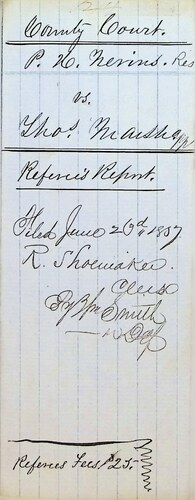 County Court.
P. H. Nevins. Res
vs.
Thos. Marsh
Referee's Report.
Filed June 1857
R. Shoemaker
Clerk
By Wm Smith
Dep
Referees Fees $25.